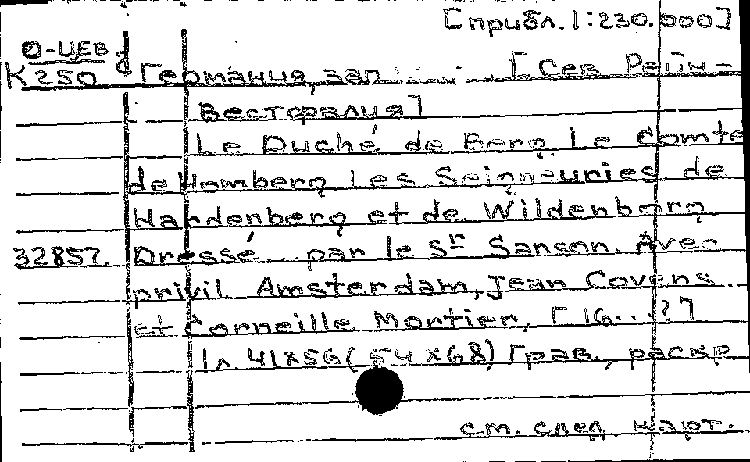 [прибл. 1:230.000]
О-ЦЕВ
К250 Германия, зап. [Сев. Рейн-
Вестфалия]
Le Duché de Berg le Comté
de Homberg les Seigneuries de
Hardenberg et de Wildenborg
32857. Dressé par le Sr Sanson. Avec
privil. Amsterdam, Jean Covens
et Corneille Mortier, [16..?]
1л. 41×56(54×68) Грав., раскр.
см. след. карт.